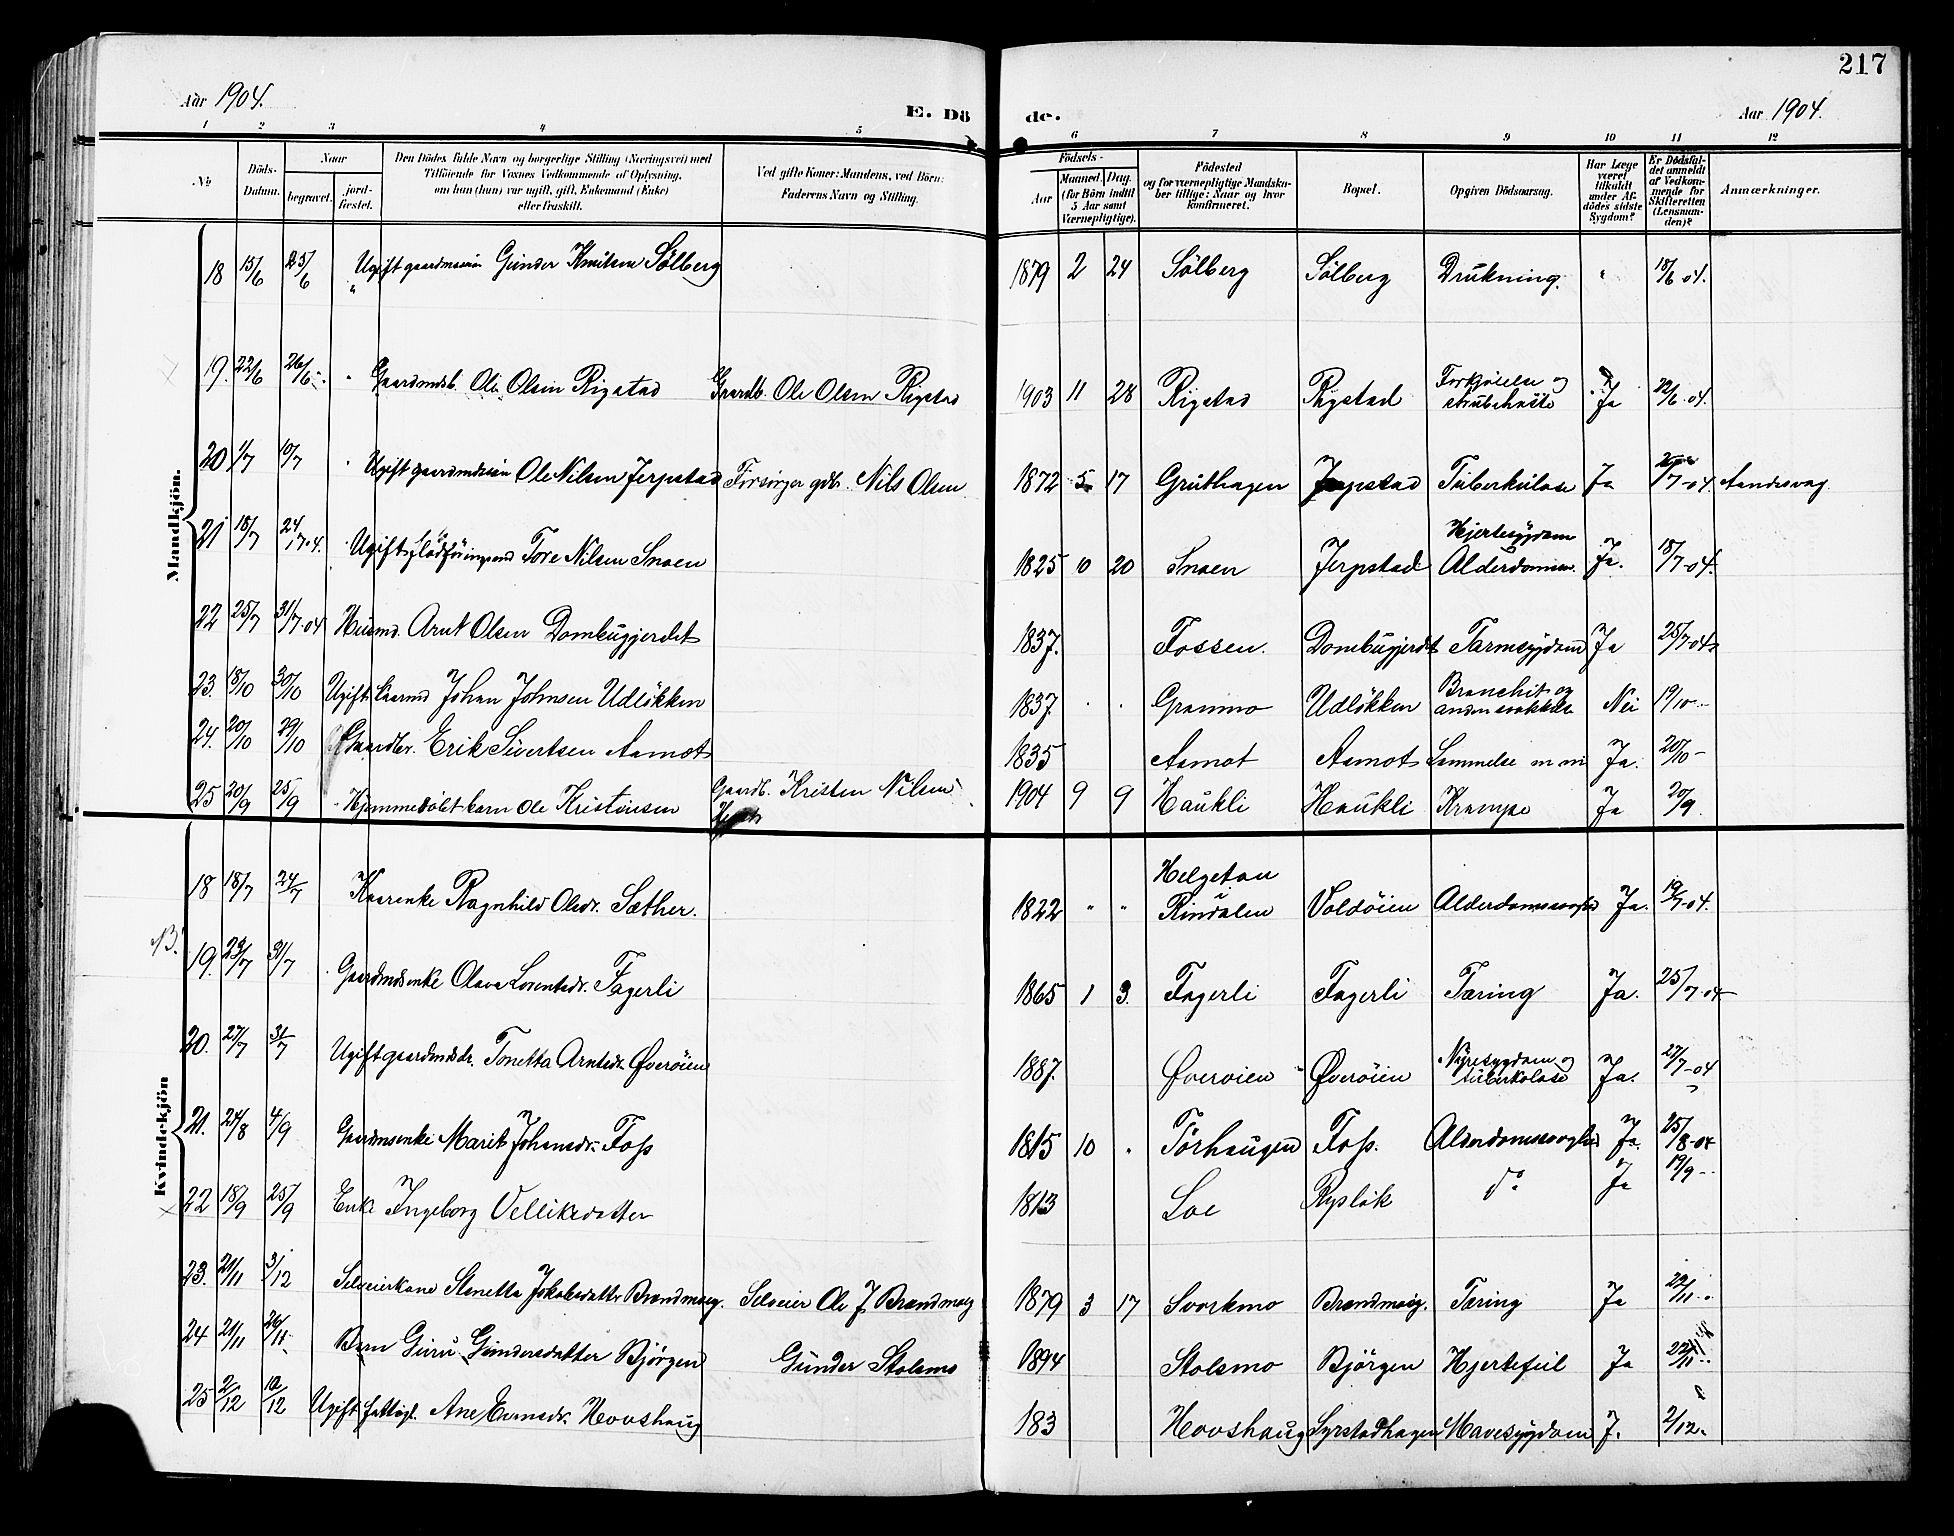 217
Aar 1904.
E. Dö de.
Aar 1904.
1 2 3 4 5 6 7 8 9 10 11 12
No
Döds-Datum.
Naar
begravet.
jord-fæstet.
Den Dödes fulde Navn og borgerlige Stilling (Næringsvei) med Tilföiende for Voxnes Vedkommende af Oplysning, om han (hun) var ugift, gift, Enkemand (Enke) eller fraskilt.
Ved gifte Koner: Mandens, ved Börn: Faderens Navn og Stilling.
Födsels-
Aar
Maaned. Dag.
(for Börn indtil 5 Aar samt Værnepligtige).
Födested og for værnepligtige Mandskaber tillige: Naar og hvor konfirmeret.
Bopæl.
Opgiven Dödsaarsag.
Har Læge været tilkaldt under Afdödes sidste Sygdom?
Er Dödsfaldet anmeldt af Vedkommende for Skifteretten (Lensmanden)?
Anmærkninger.
Mandkjön.
18 15/6 25/6 " Ugift gaardmandssön Gunder Knutsen Sölberg 1879 2 24 Sölberg Sölberg Drukning. " 18/6 04.
19. 22/6 26/6 Gaardmdsb. Ole Olsen Rigstad Gaardb. Ole Olsen Rigstad 1903 11 28 Rigstad Rigstad Forkjølelse og strubehoste Ja 22/6 04.
20 1/7 10/7 Ugift gaardmdssön Ole Nilsen Jerpstad Forsörger gdb. Nils Olsen 1872 5 17 Gruthagen Jerpstad Tuberkulose Ja 1/7-04. Aandssvag
21 18/7 24/7.04. Ugift Tore Nilsen Snoen 1825 10 20 Snoen Jerpstad Hjertesygdom Alderdomm. Ja. 18/7-04.
22 25/7 31/7-04 Husmd. Arnt Olsen Dombugjerdet 1837. Fossen. Dombugjerdet Tarmsygdom Ja 25/7-04
23. 18/10 30/10 Ugift Johan Johnsen Udlökken 1837. Granmo Udlökken Bronchit og Nei 19/10
24. 20/10 29/10 Gaardbr. Erik Sivertsen Aamot 1835 Aamot Aamot Lammelse m m Ja. 20/10
25 20/9 25/9 Hjemmedöbt barn Ole Kristensen Gaardb. Kristen Nilsen 1904 9 9 Haukli Haukli Krampe Ja 20/9.
Kvindekjön
18 18/7 24/7 Kaarenke Ragnhild Olsdr. Sæther. 1822 " " Helgetun i Rindalen Voldöien Alderdomssvaghed Ja. 19/7-04.
19. 23/7 31/7 Gaardmdsenke Olava Lorentsdr. Fagerli 1865 1 3. Fagerli Fagerli Tæring Ja. 25/7-04
20. 27/7 31/7 Ugift gaardmdsdr. Tonetta Arntsdr. Øveröien 1887. Øveröien Øveröien Nyresygdom og tuberkolose Ja. 27/7-04
21. 24/8 4/9 Gaardmsenke Marit Johansdr. Foss 1815 10 " Törhaugen Foss. Alderdomssvaghed Ja. 25/8-04
22 18/9 25/9 Enke Ingeborg Vellikedatter 1813 Loe Ryslök do Ja 19/9
23. 21/11 3/12 Selveierkone Stenetta Jokobsdatter Brandmoeg. Selveier Ole J Brandmoeg 1879 3 17 Svorkmo Brandmoeg. Tæring Ja 22/11
24 21/11 26/11 Barn Guru Gundersdatter Bjørgen Gunder Stolsmo 1894 Stolsmo Bjørgen Hjertefeil Ja 22/11
25 2/12 10/12 Ugift fattigl. Ane Evensdr. Hovshaug 183 Hovshaug Syrstadhagen Mavesygdom J. 2/12.